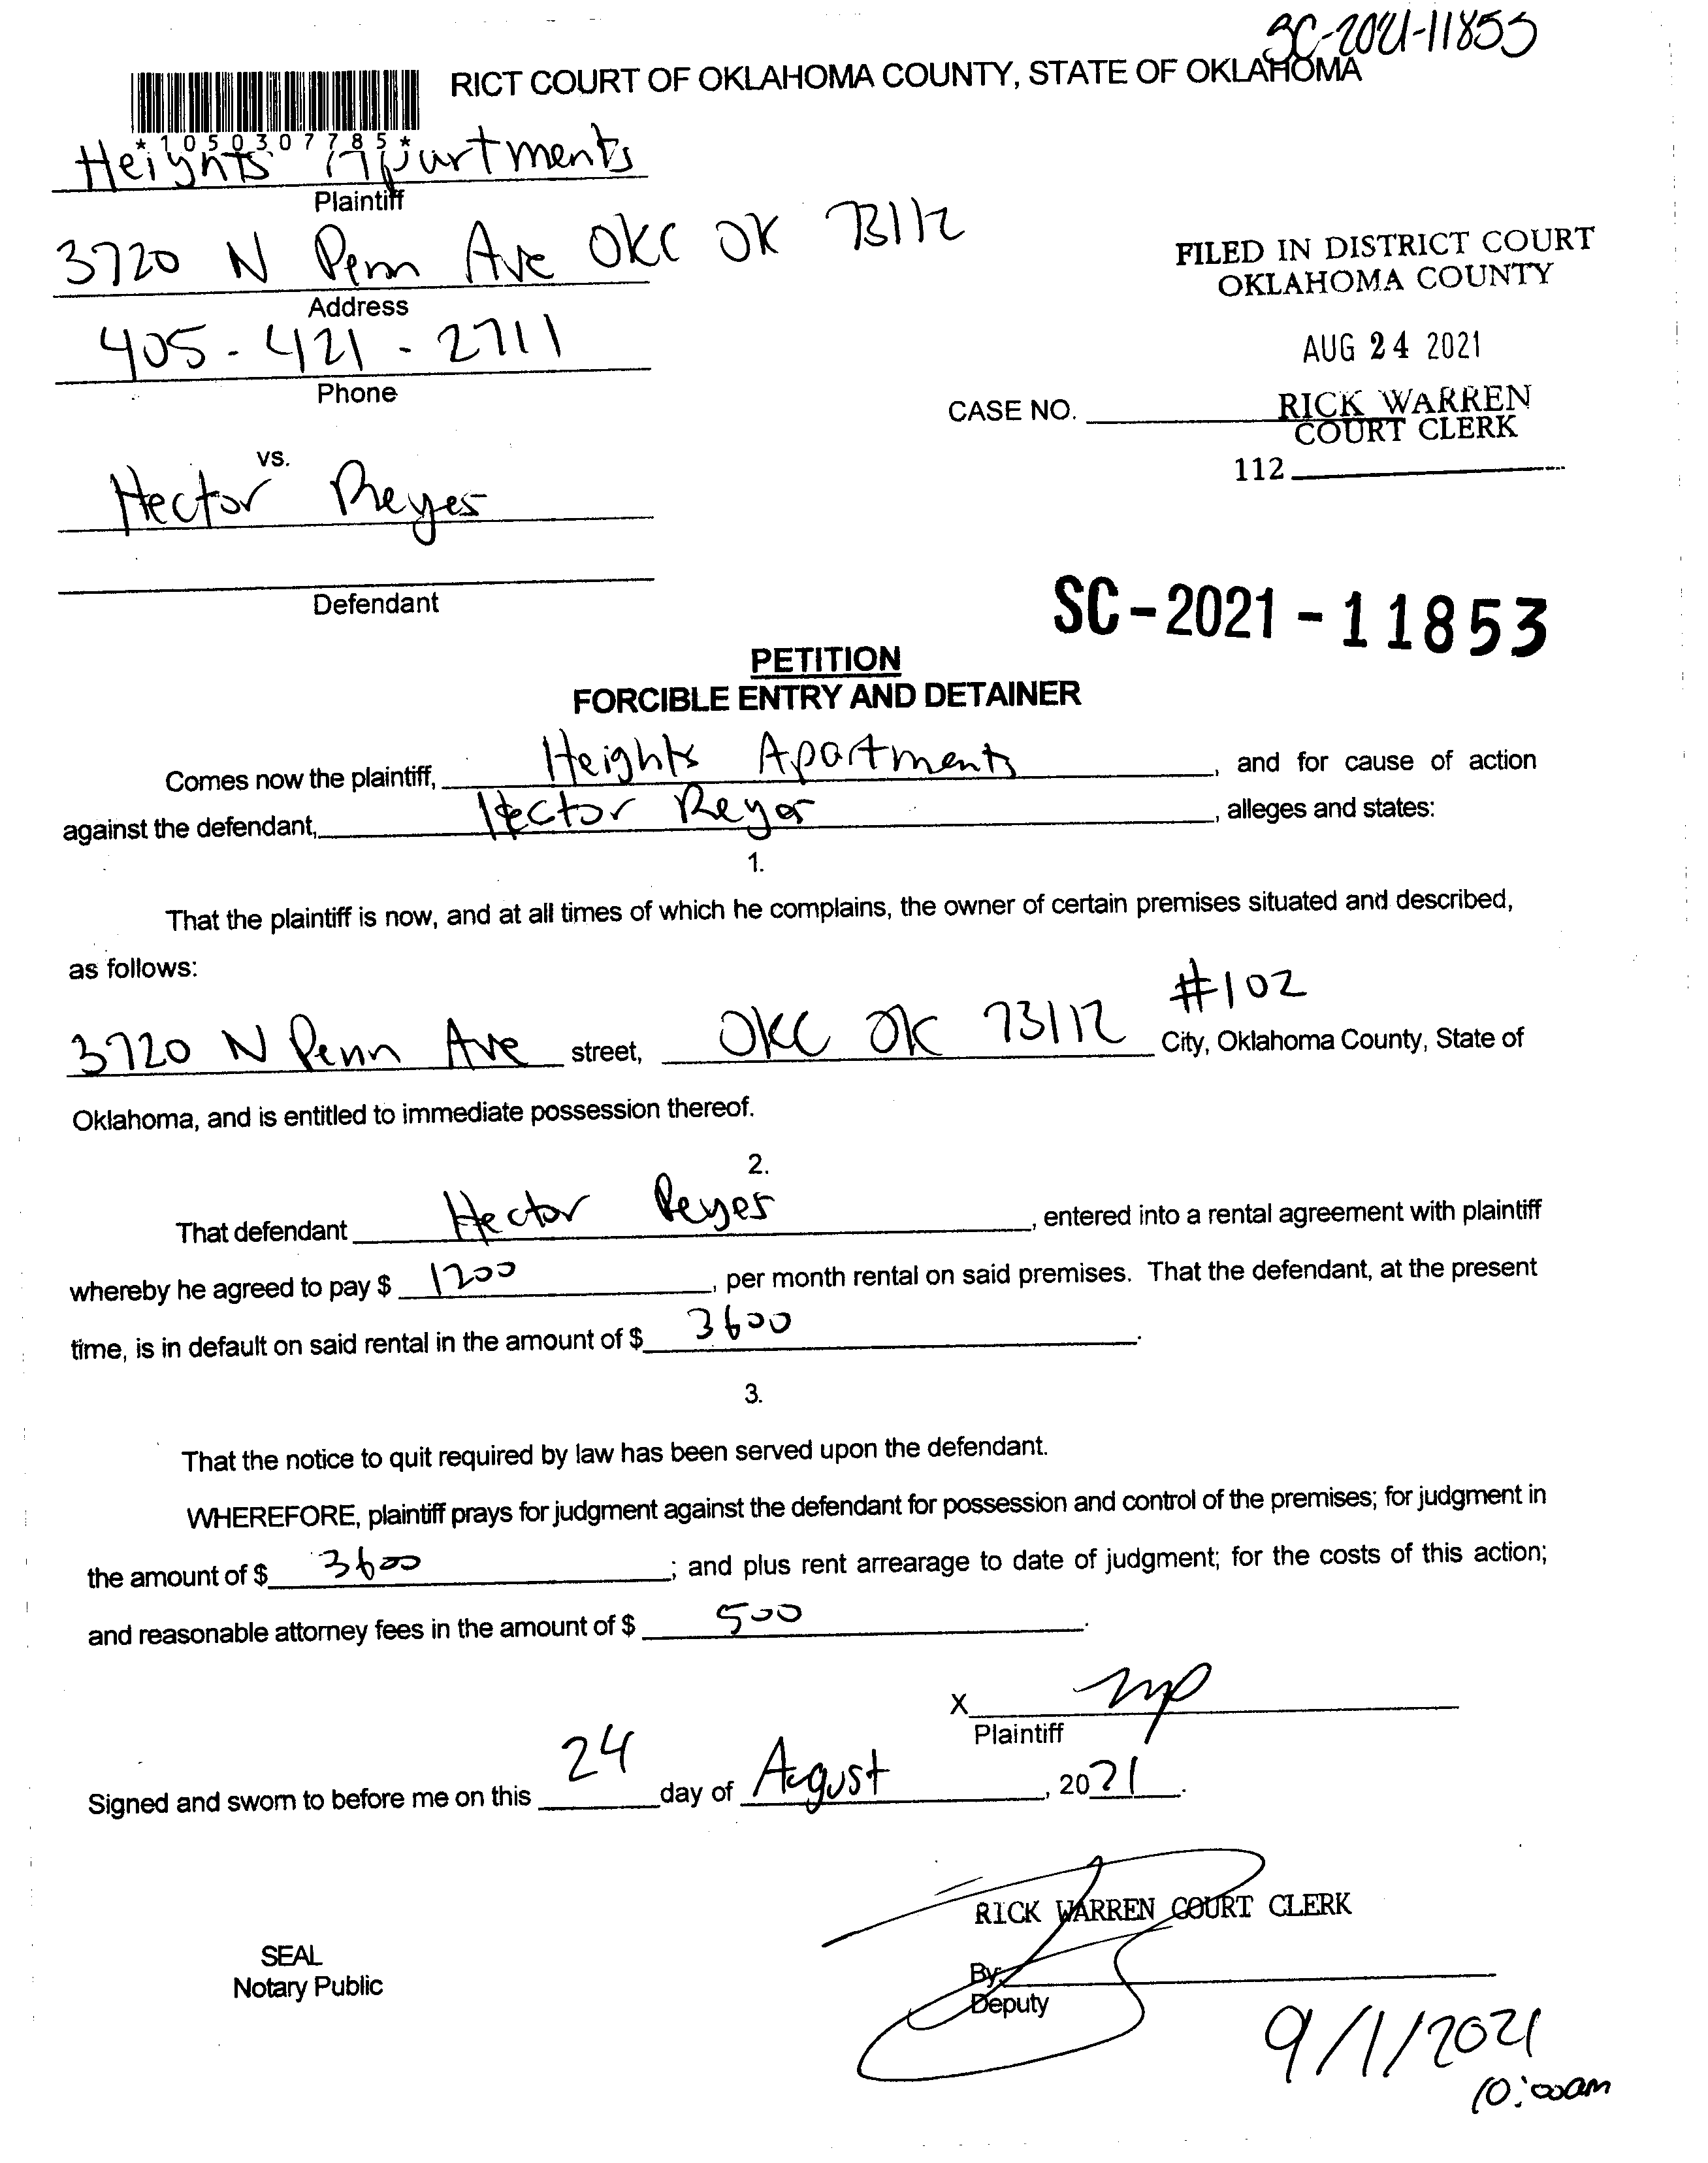 SC-2021-11853
RICT COURT OF OKLAHOMA COUNTY, STATE OF OKLAHOMA
*1050307785*
Heights Apartments
Plaintiff
3720 N Penn Ave OKC OK 73112
Address
405-421-2711
Phone
FILED IN DISTRICT COURT
OKLAHOMA COUNTY
AUG 24 2021
RICK WARREN
COURT CLERK
CASE NO.
112
vs.
Hector Reyes
Defendant
SC-2021-11853
PETITION
FORCIBLE ENTRY AND DETAINER
Comes now the plaintiff, Heights Apartments, and for cause of action
against the defendant, Hector Reyes, alleges and states:
1.
That the plaintiff is now, and at all times of which he complains, the owner of certain premises situated and described,
as follows:
#102
3720 N Penn Ave street, OKC OK 73112 City, Oklahoma County, State of
Oklahoma, and is entitled to immediate possession thereof.
2.
That defendant Hector Reyes, entered into a rental agreement with plaintiff
whereby he agreed to pay $ 1200, per month rental on said premises. That the defendant, at the present
time, is in default on said rental in the amount of $ 3600.
3.
That the notice to quit required by law has been served upon the defendant.
WHEREFORE, plaintiff prays for judgment against the defendant for possession and control of the premises; for judgment in
the amount of $ 3600; and plus rent arrearage to date of judgment; for the costs of this action;
and reasonable attorney fees in the amount of $ 500.
X
Plaintiff
Signed and sworn to before me on this 24 day of August, 2021.
RICK WARREN COURT CLERK
SEAL
Notary Public
By
Deputy
9/1/2021
10:00am